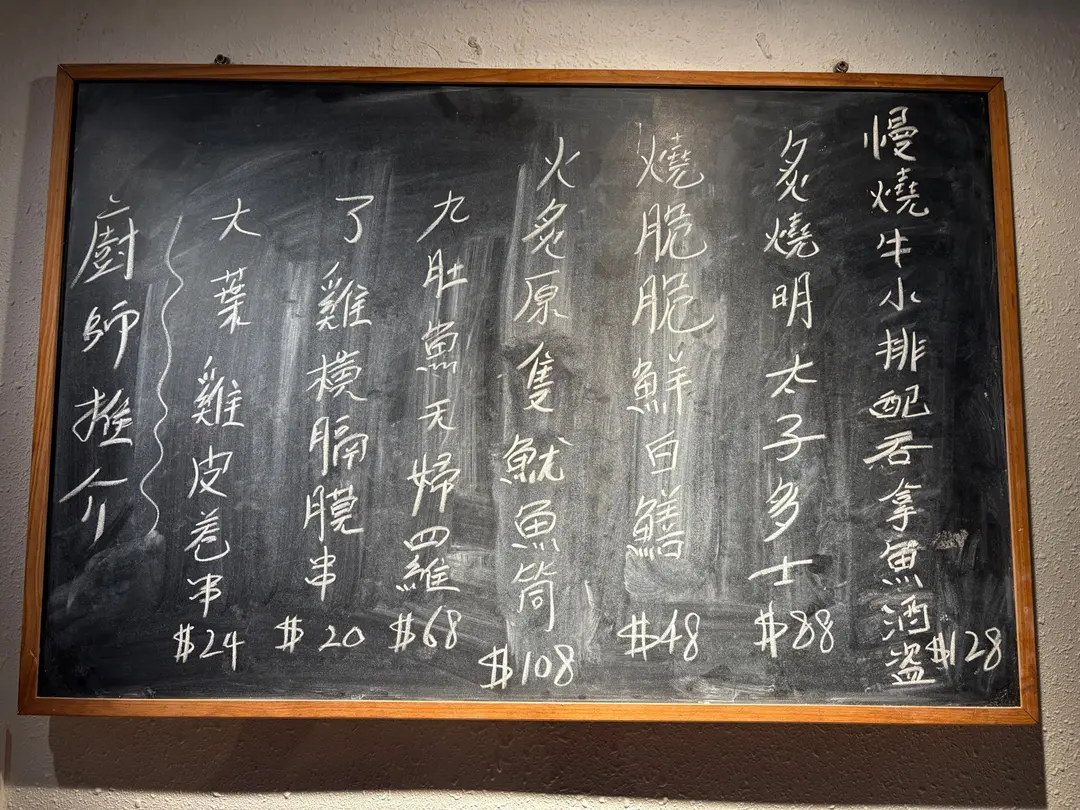 廚師推介
大葉雞皮卷串
$24
了雞橫膈膜串
$20
九肚魚天婦羅
$68
火炙原隻魷魚筒
$108
燒脆脆鮮白鱔
$48
炙燒明太子多士
$88
慢燒牛小排配吞拿魚酒盜
$128